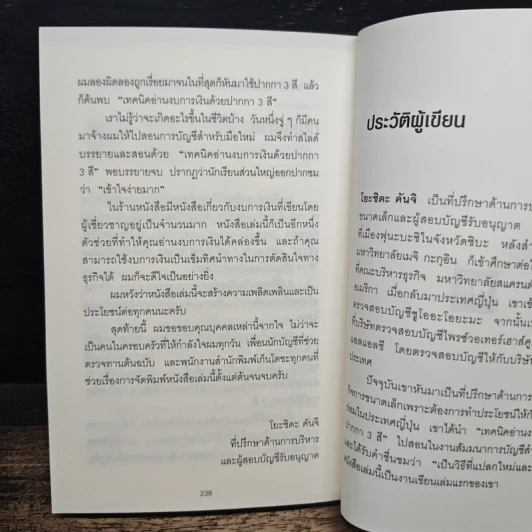 ผมลองผิดลองถูกเรื่อยมาจนในที่สุดก็หันมาใช้ปากกา 3 สี แล้ว
ก็ค้นพบ “เทคนิคอ่านงบการเงินด้วยปากกา 3 สี”
เราไม่รู้ว่าจะเกิดอะไรขึ้นในชีวิตบ้าง วันหนึ่งจู่ ๆ ก็มีคน
มาจ้างผมให้ไปสอนการบัญชีสำหรับมือใหม่ ผมจึงทำสไลด์
บรรยายและสอนด้วย “เทคนิคอ่านงบการเงินด้วยปากกา
3 สี” พอบรรยายจบ ปรากฏว่านักเรียนส่วนใหญ่ออกปากชม
ว่า “เข้าใจง่ายมาก”
ในร้านหนังสือมีหนังสือเกี่ยวกับงบการเงินที่เขียนโดย
ผู้เชี่ยวชาญอยู่เป็นจำนวนมาก หนังสือเล่มนี้ก็เป็นอีกหนึ่ง
ตัวช่วยที่ทำให้คุณอ่านงบการเงินได้คล่องขึ้น และถ้าคุณ
สามารถใช้งบการเงินเป็นเข็มทิศนำทางในการตัดสินใจทาง
ธุรกิจได้ ผมก็จะดีใจเป็นอย่างยิ่ง
ผมหวังว่าหนังสือเล่มนี้จะสร้างความเพลิดเพลินและเป็น
ประโยชน์ต่อทุกคนนะครับ
สุดท้ายนี้ ผมขอขอบคุณบุคคลเหล่านี้จากใจ ไม่ว่าจะ
เป็นคนในครอบครัวที่ให้กำลังใจผมทุกวัน เพื่อนนักบัญชีที่ช่วย
ตรวจทานต้นฉบับ และพนักงานสำนักพิมพ์เก็นโตะชะทุกคนที่
ช่วยเรื่องการจัดพิมพ์หนังสือเล่มนี้ตั้งแต่ต้นจนจบครับ
โยะชิดะ คันจิ
ที่ปรึกษาด้านการบริหาร
และผู้สอบบัญชีรับอนุญาต
238
ประวัติผู้เขียน
โยะชิดะ คันจิ เป็นที่ปรึกษาด้านการบ
ขนาดเล็กและผู้สอบบัญชีรับอนุญาต
ที่เมืองฟุนะบะชิในจังหวัดชิบะ หลังสำ
มหาวิทยาลัยเมจิ กะกุอิน ก็เข้าศึกษาต่อใ
ที่คณะบริหารธุรกิจ มหาวิทยาลัยสแครนตั
อเมริกา เมื่อกลับมาประเทศญี่ปุ่น เขาเข้า
ตรวจสอบบัญชีชูโอะอะโอะยะมะ จากนั้นเ
ที่บริษัทตรวจสอบบัญชีไพรซ์วอเทอร์เฮาส์คู
แอลแอลซี โดยตรวจสอบบัญชีให้กับบริษั
ประเทศ
ปัจจุบันเขาหันมาเป็นที่ปรึกษาด้านการ
กิจการขนาดเล็กเพราะต้องการทำประโยชน์ให้ก
ย่อมในประเทศญี่ปุ่น เขาได้นำ “เทคนิคอ่านงบ
ปากกา 3 สี” ไปสอนในงานสัมมนาการบัญชีสำ
และได้รับคำชื่นชมว่า “เป็นวิธีที่แปลกใหม่และเ
หนังสือเล่มนี้เป็นงานเขียนเล่มแรกของเขา